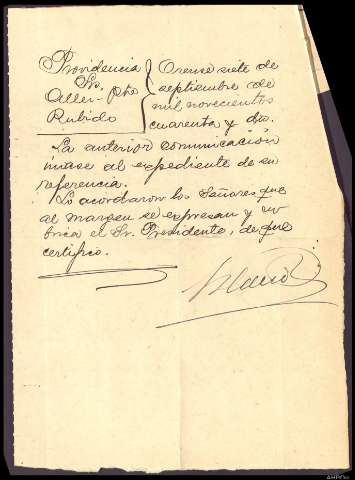 Providencia
Sres.
Aller - Pto
Rubido
Orense siete de
septiembre de
mil novecientos
cuarenta y dos.
La anterior comunicación
únase al expediente de su
referencia.
Lo acordaron los Señores que
al margen se expresan y ru
brica el Sr. Presidente, de que
certifico.
AHPOu